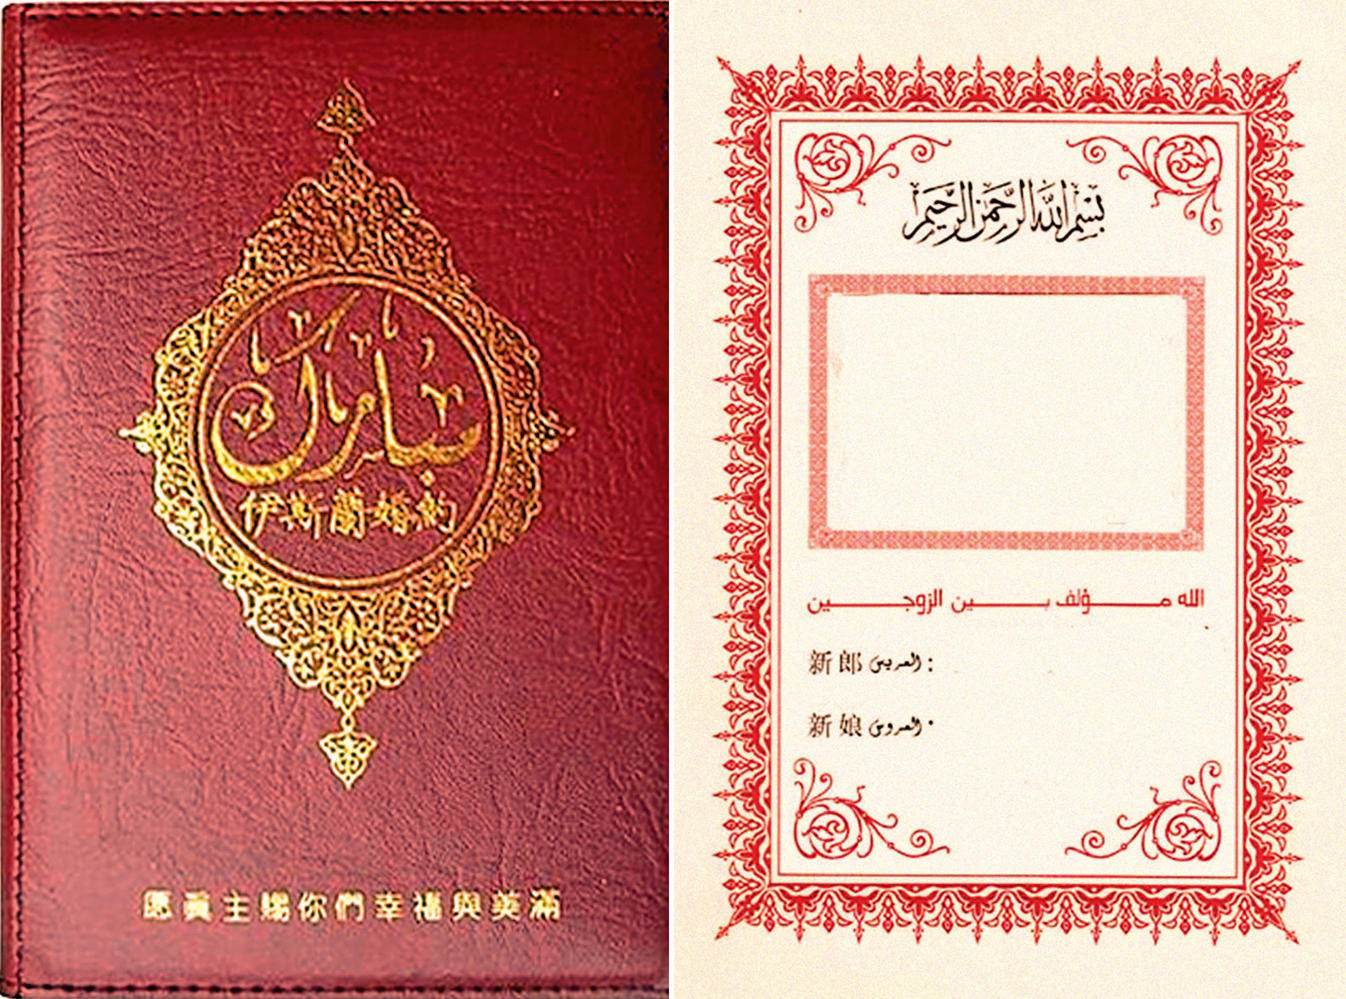 مبارك
伊斯蘭婚約
愿真主賜你們幸福與美滿
بِسْمِ اللَّهِ الرَّحْمَنِ الرَّحِيمِ
الله مـــؤلف بـــين الزوجـــين
新郎 العريس :
新娘 العروس :